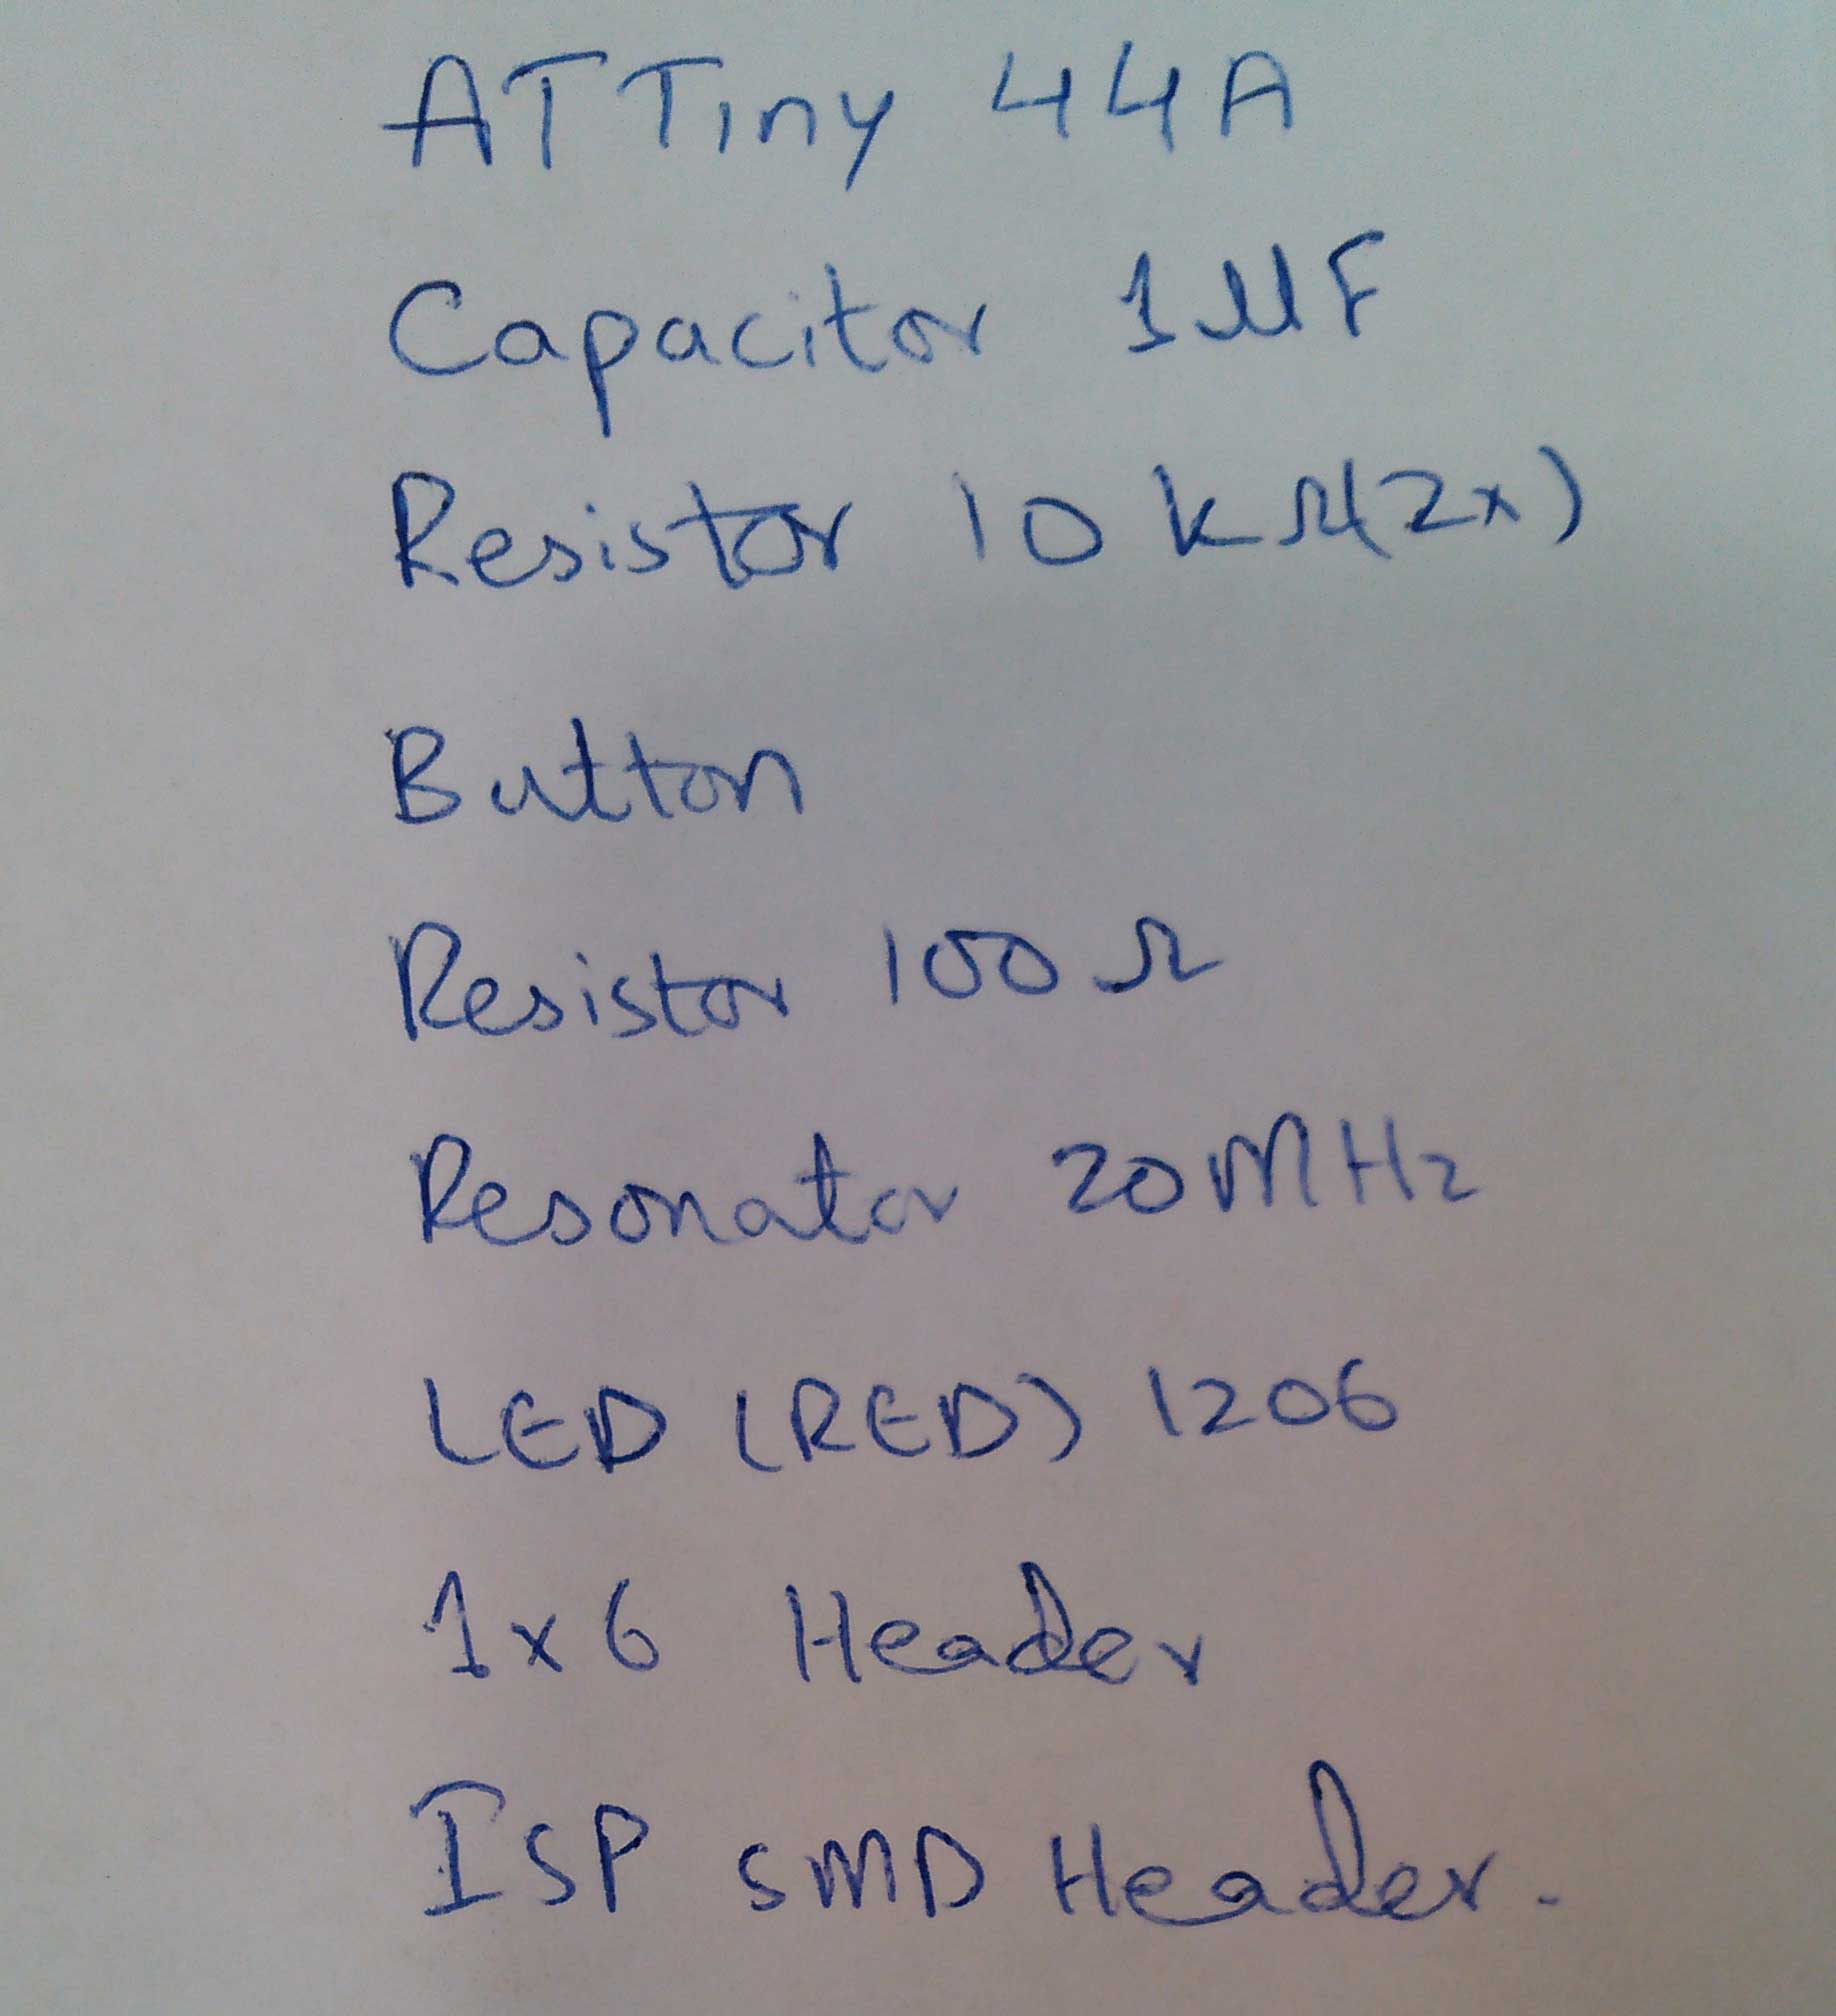 ATTiny 44A
Capacitor 1µF
Resistor 10 kΩ(2x)
Button
Resistor 100Ω
Resonator 20MHz
LED (RED) 1206
1x6 Header
ISP SMD Header.